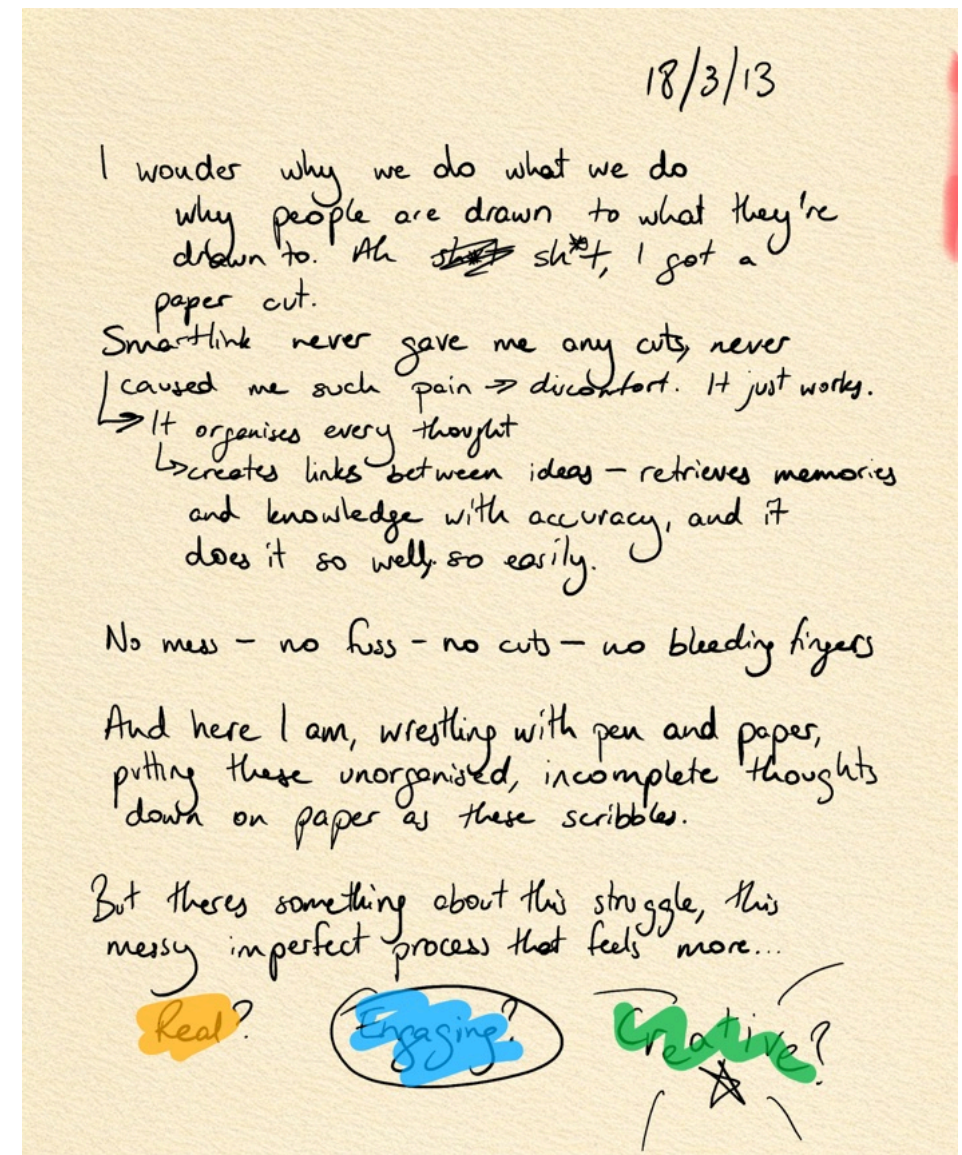 18/3/13
I wonder why we do what we do
why people are drawn to what they're
drawn to. Ah sh*t sh*t, I got a
paper cut.
Smartlink never gave me any cuts, never
caused me such pain → discomfort. It just works.
↳ It organises every thought
↳ creates links between ideas – retrieves memories
and knowledge with accuracy, and it
does it so well, so easily.
No mess – no fuss – no cuts – no bleeding fingers
And here I am, wrestling with pen and paper,
putting these unorganised, incomplete thoughts
down on paper as these scribbles.
But theres something about this struggle, this
messy imperfect process that feels more...
Real? Engaging? Creative?